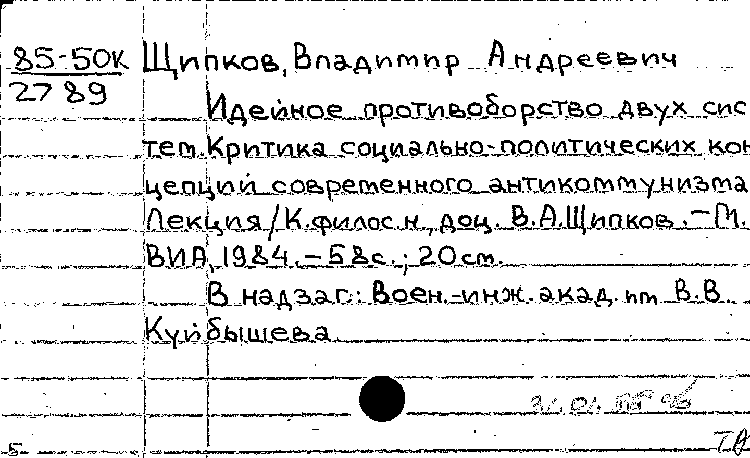 85-50К Щипков, Владимир Андреевич
2789
Идейное противоборство двух сис
тем. Критика социально-политических кон
цепций современного антикоммунизма
Лекция / К.филос.н., доц. В.А.Щипков. – М.
ВИА, 1984. – 58с.; 20 см.
В надзаг.: Воен.-инж. акад. им В.В
Куйбышева